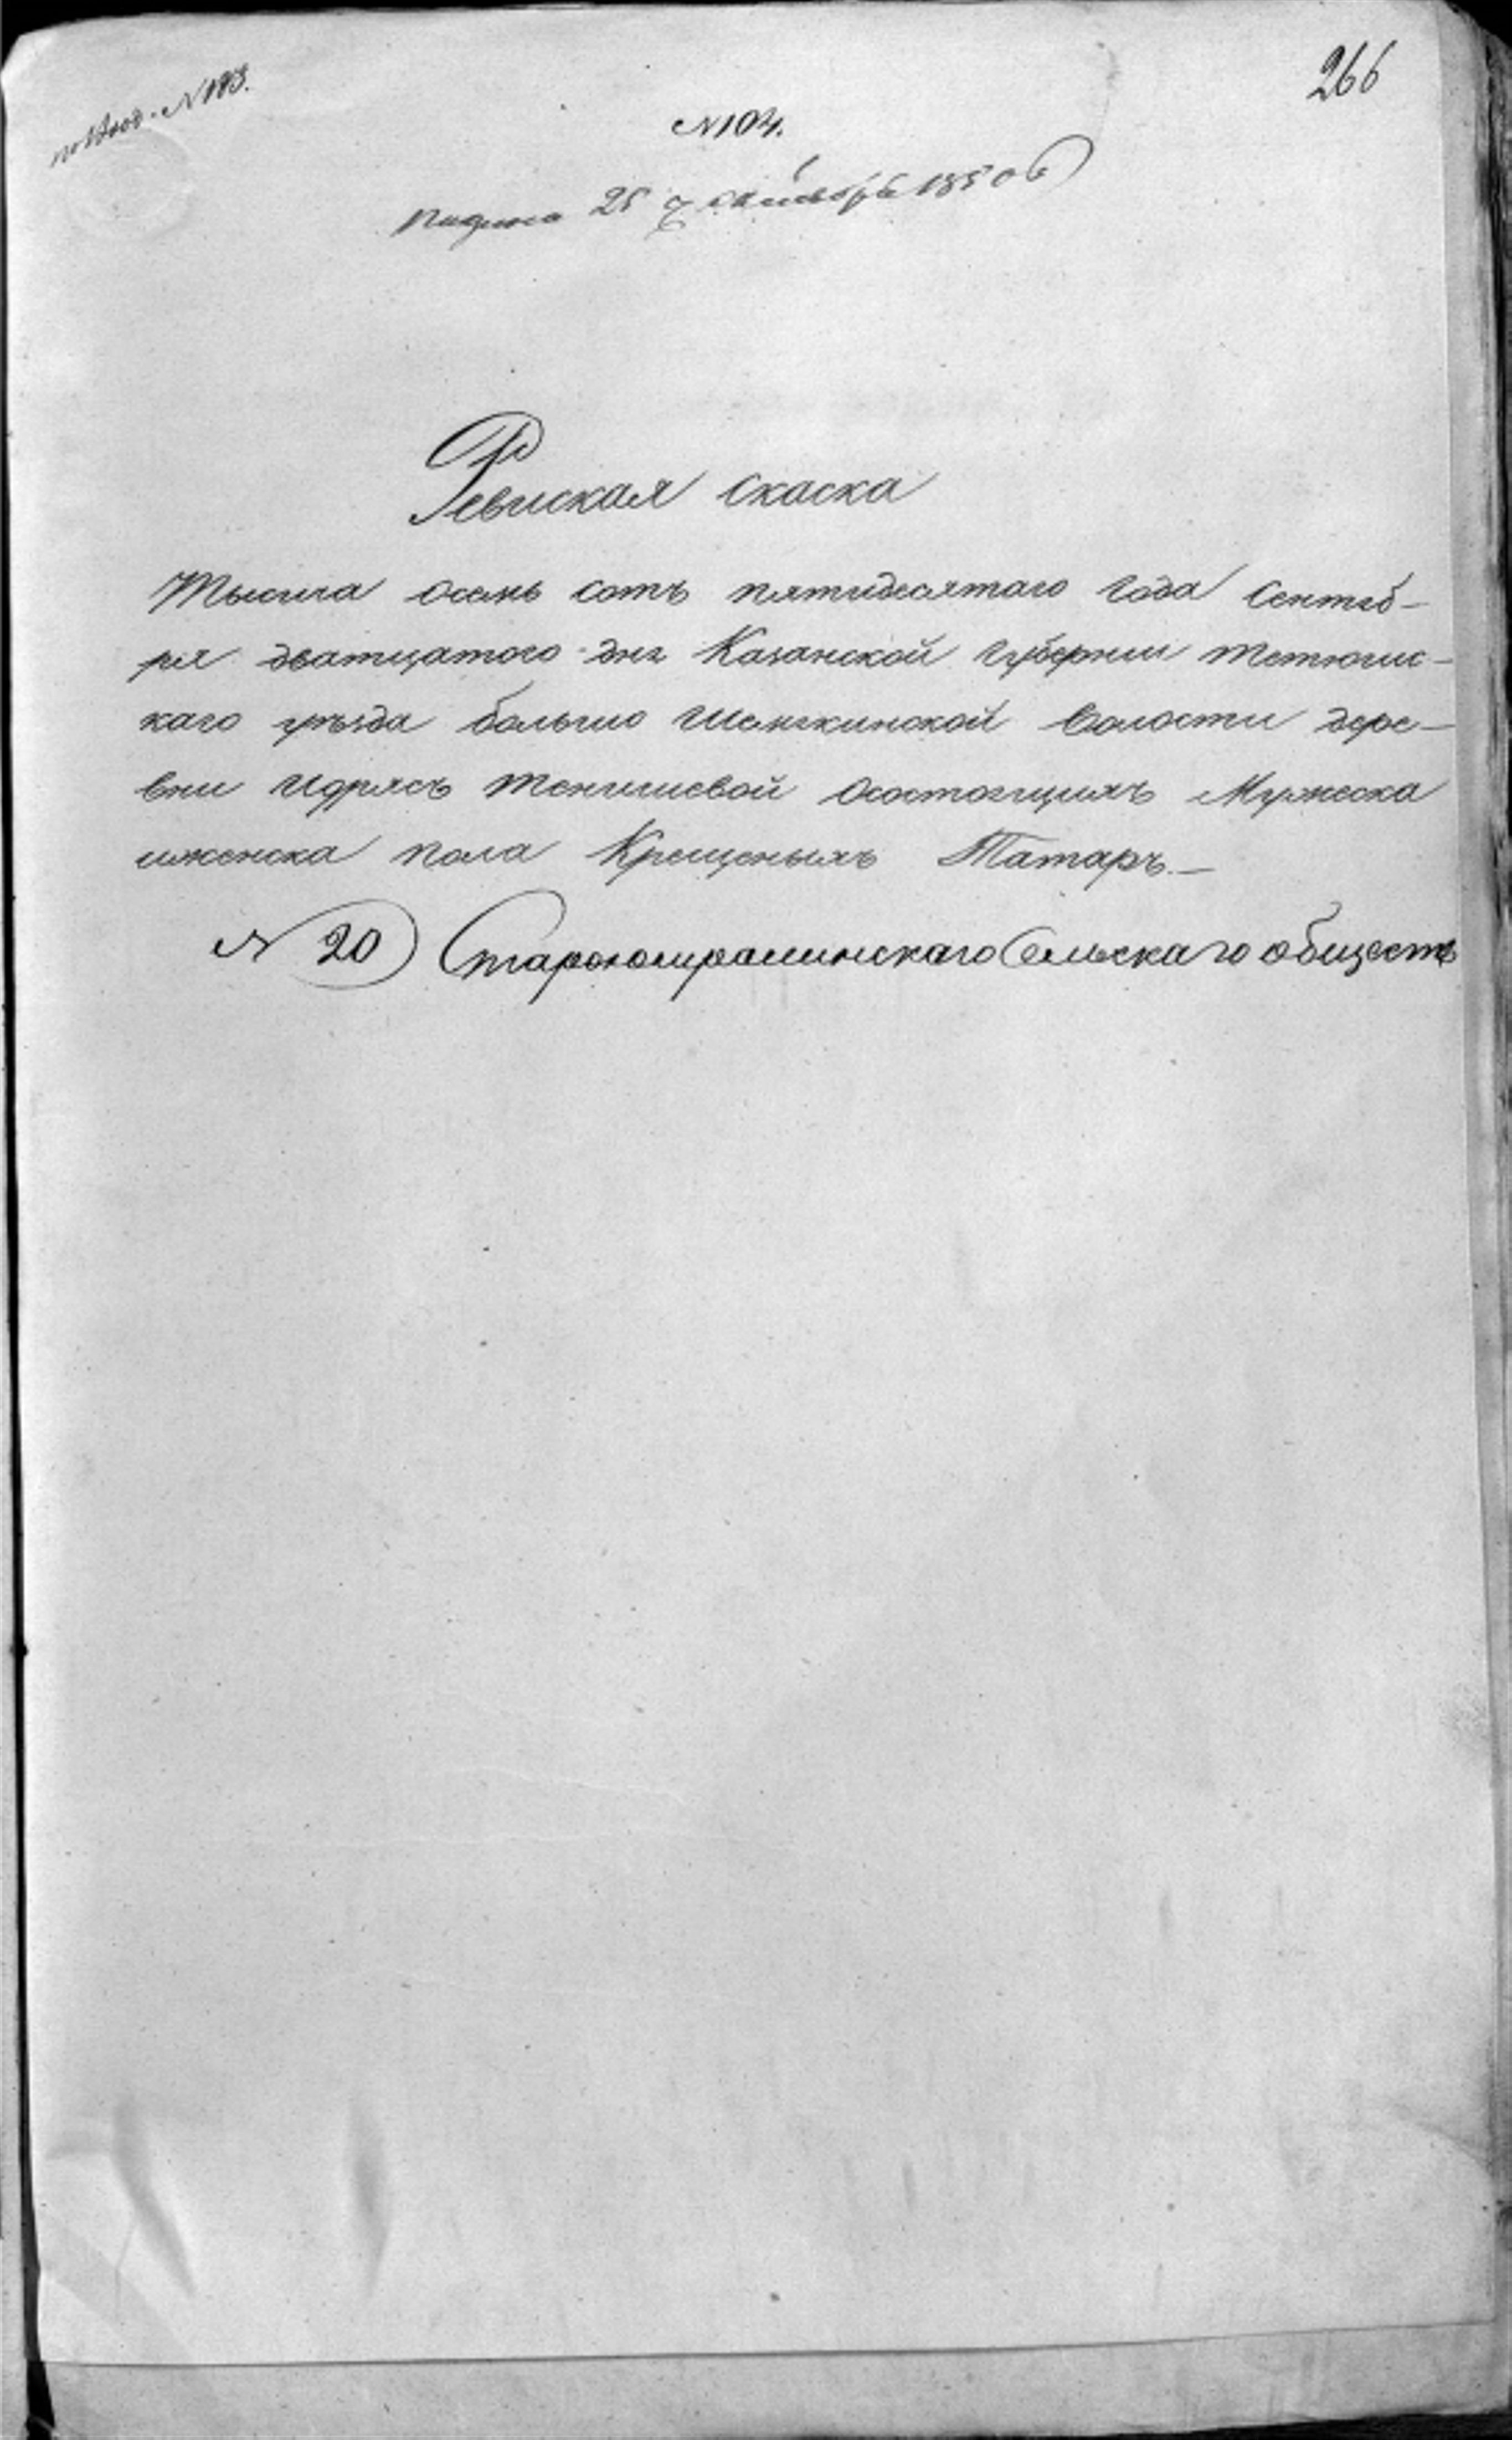 266
N 104.
Подана 25 октября 1850 г
Ревиская скаска
Тысяча осемь сотъ пятидесятаго года Сентяб-
ря дватцатого дня Казанской губернии тетюшис-
каго уѣзда большо Шемякинской волости дере-
вни Идрясъ тенишевой осостоящихъ Мужеска
иженска пола Крещеныхъ Татаръ.—
N 20 Сельскаго обществ